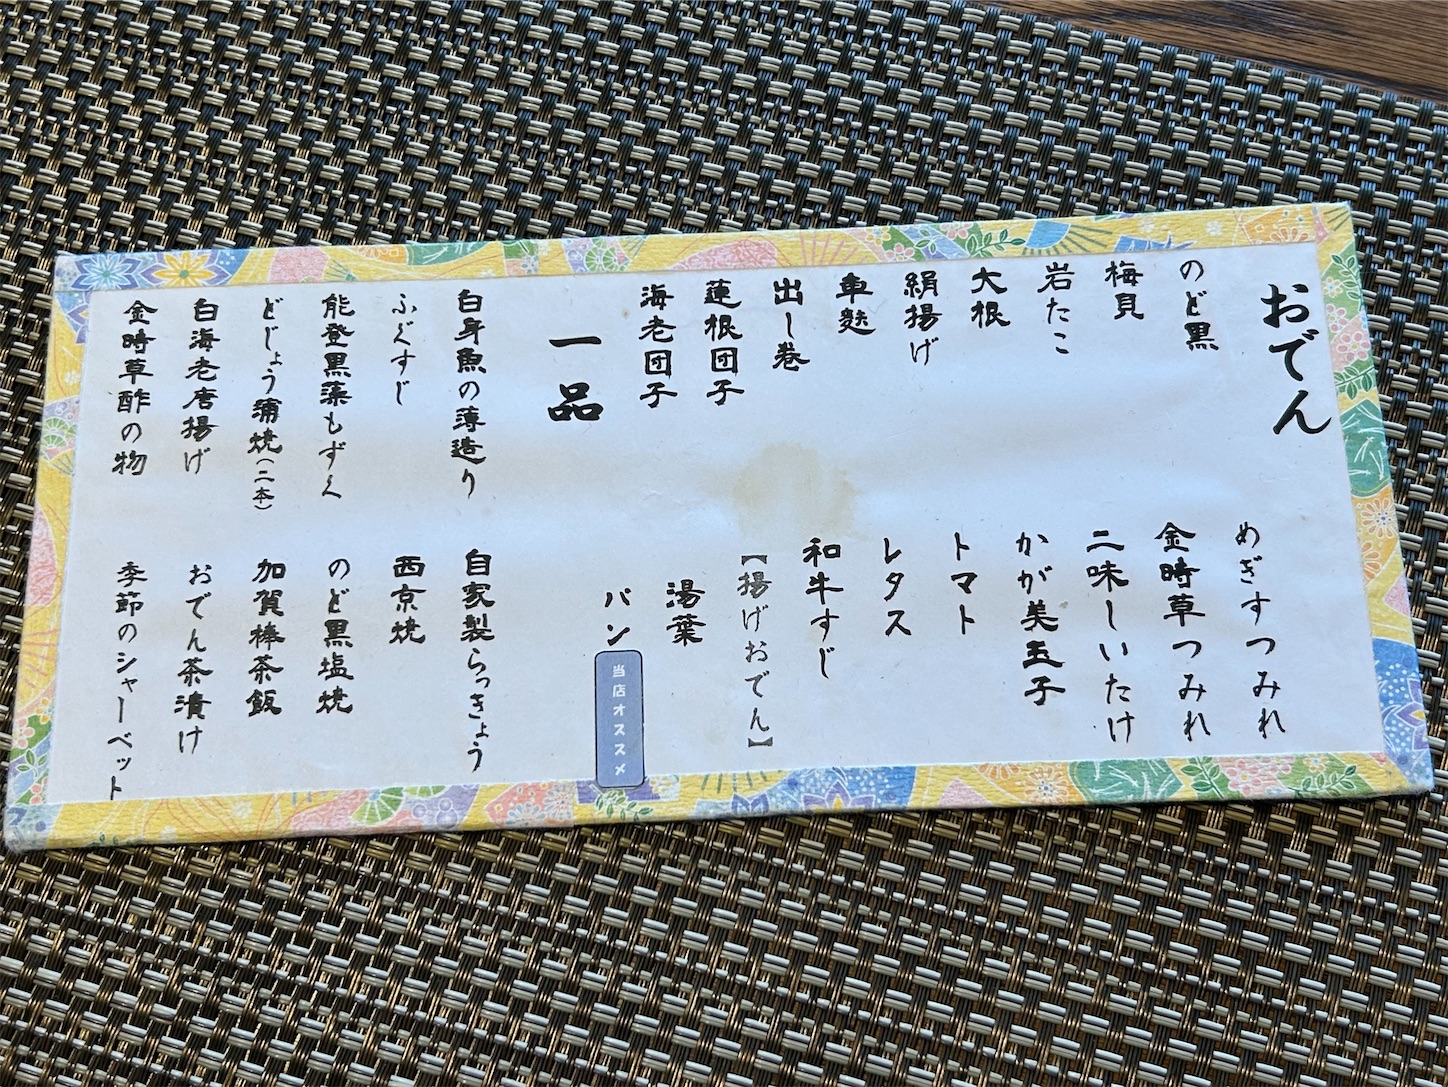 おでん
のど黒
梅貝
岩たこ
大根
絹揚げ
車麩
出し巻
蓮根団子
海老団子
めぎすつみれ
金時草つみれ
二味しいたけ
かが美玉子
トマト
レタス
和牛すじ
【揚げおでん】
湯葉
パン
当店オススメ
一品
白身魚の薄造り
ふぐすじ
能登黒藻もずく
どじょう蒲焼(二本)
白海老唐揚げ
金時草酢の物
自家製らっきょう
西京焼
のど黒塩焼
加賀棒茶飯
おでん茶漬け
季節のシャーベット